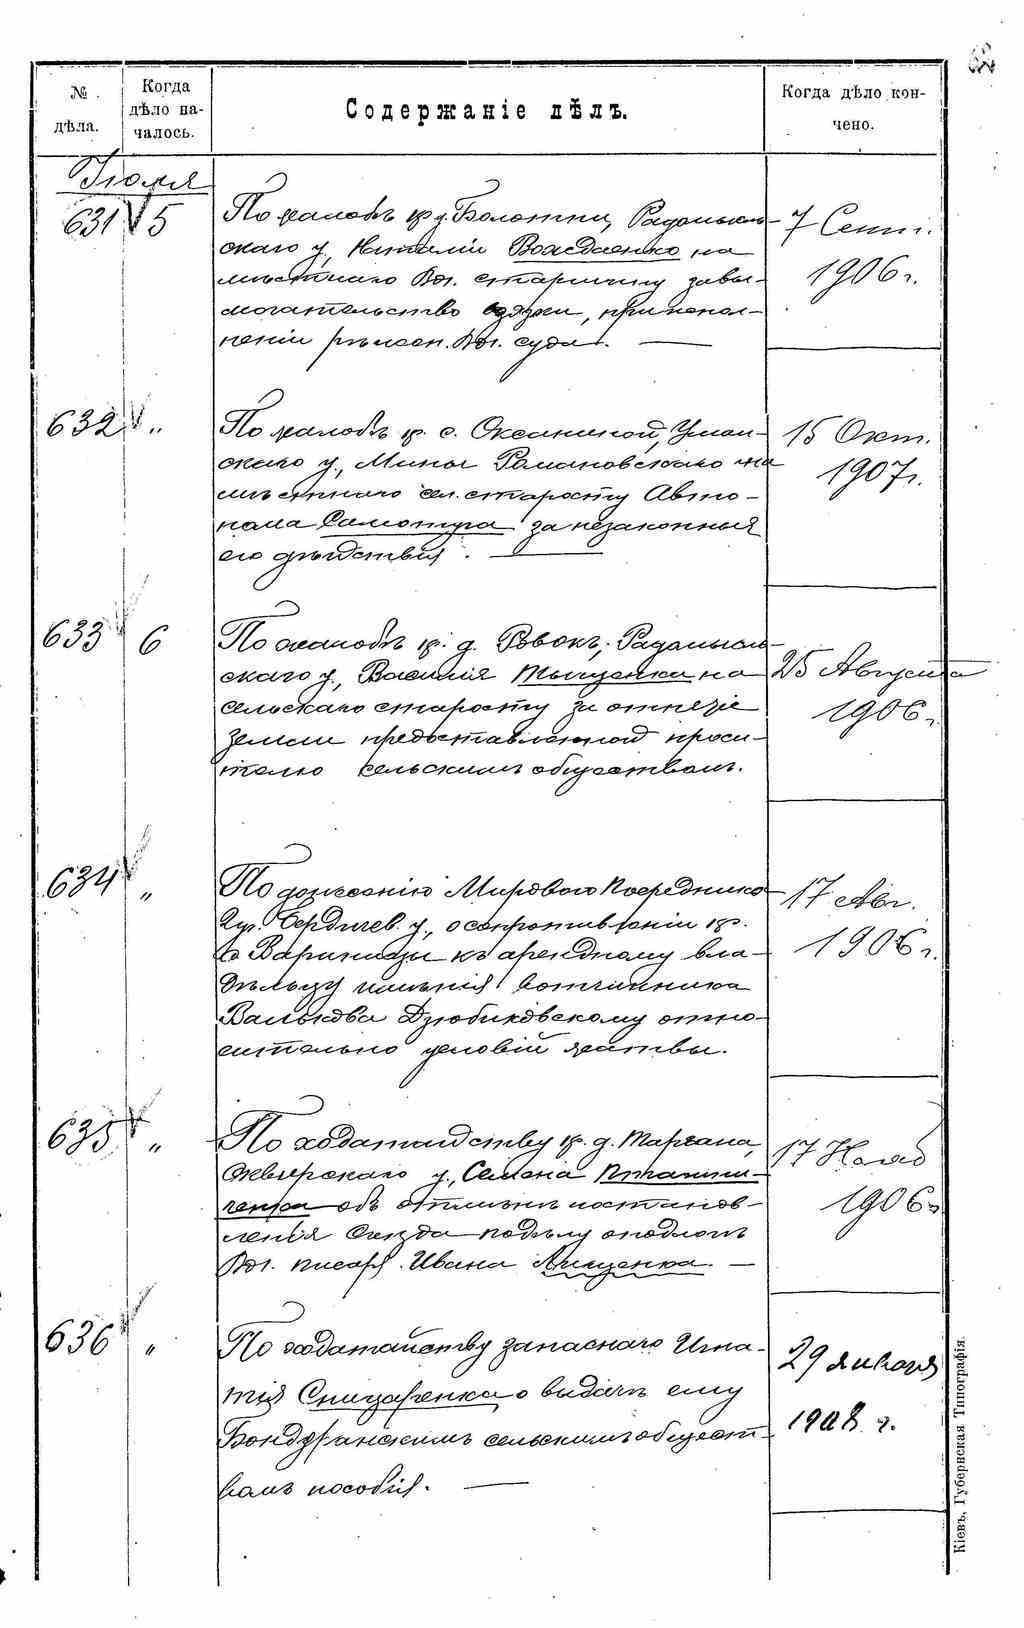 № дѣла.
Когда дѣло началось.
Содержаніе дѣлъ.
Когда дѣло кончено.
Іюля
631 5
По жалобѣ кр. д. Болотни, Радомысль-
скаго у.,
мѣстнаго Вол. старшину за вы-
могательство взятки, при испол-
неніи рѣшен. Вол. суда.
7 Сент.
1906 г.
632 "
По жалобѣ кр. с. Оксаниной, Уман-
скаго у., Мины Романовскаго на
мѣстнаго сел. старосту Авто-
нома Самотуга за незаконныя
его дѣйствія.
15 Окт.
1907 г.
633 6
По жалобѣ кр. д. Ровокъ, Радомысль-
скаго у., Василія Тыщенка на
сельскаго старосту за отнятіе
земли предоставленной проси-
телю сельскимъ обществомъ.
25 Августа
1906 г.
634 "
По донесенію Мирового Посредника
2 уч. Бердичев. у., о сопротивленіи кр.
с. къ арендному вла-
дѣльцу имѣнія вотчинника
Валькова Дзюбиковскому отно-
сительно условій жатвы.
17 Авг.
1906 г.
635 "
По ходатайству кр. д. Таргана,
Сквирскаго у., Семена
ченка объ отмѣнѣ постанов-
ленія Съезда по дѣлу о подлогѣ
Вол. писаря Ивана Лищенка.
17 Нояб
1906 г.
636 "
По ходатайству запаснаго Игна-
тія Сницаренка о выдачѣ ему
сельскимъ общест-
вомъ пособія.
29 января
1908 г.
Кіевъ, Губернская Типографія.